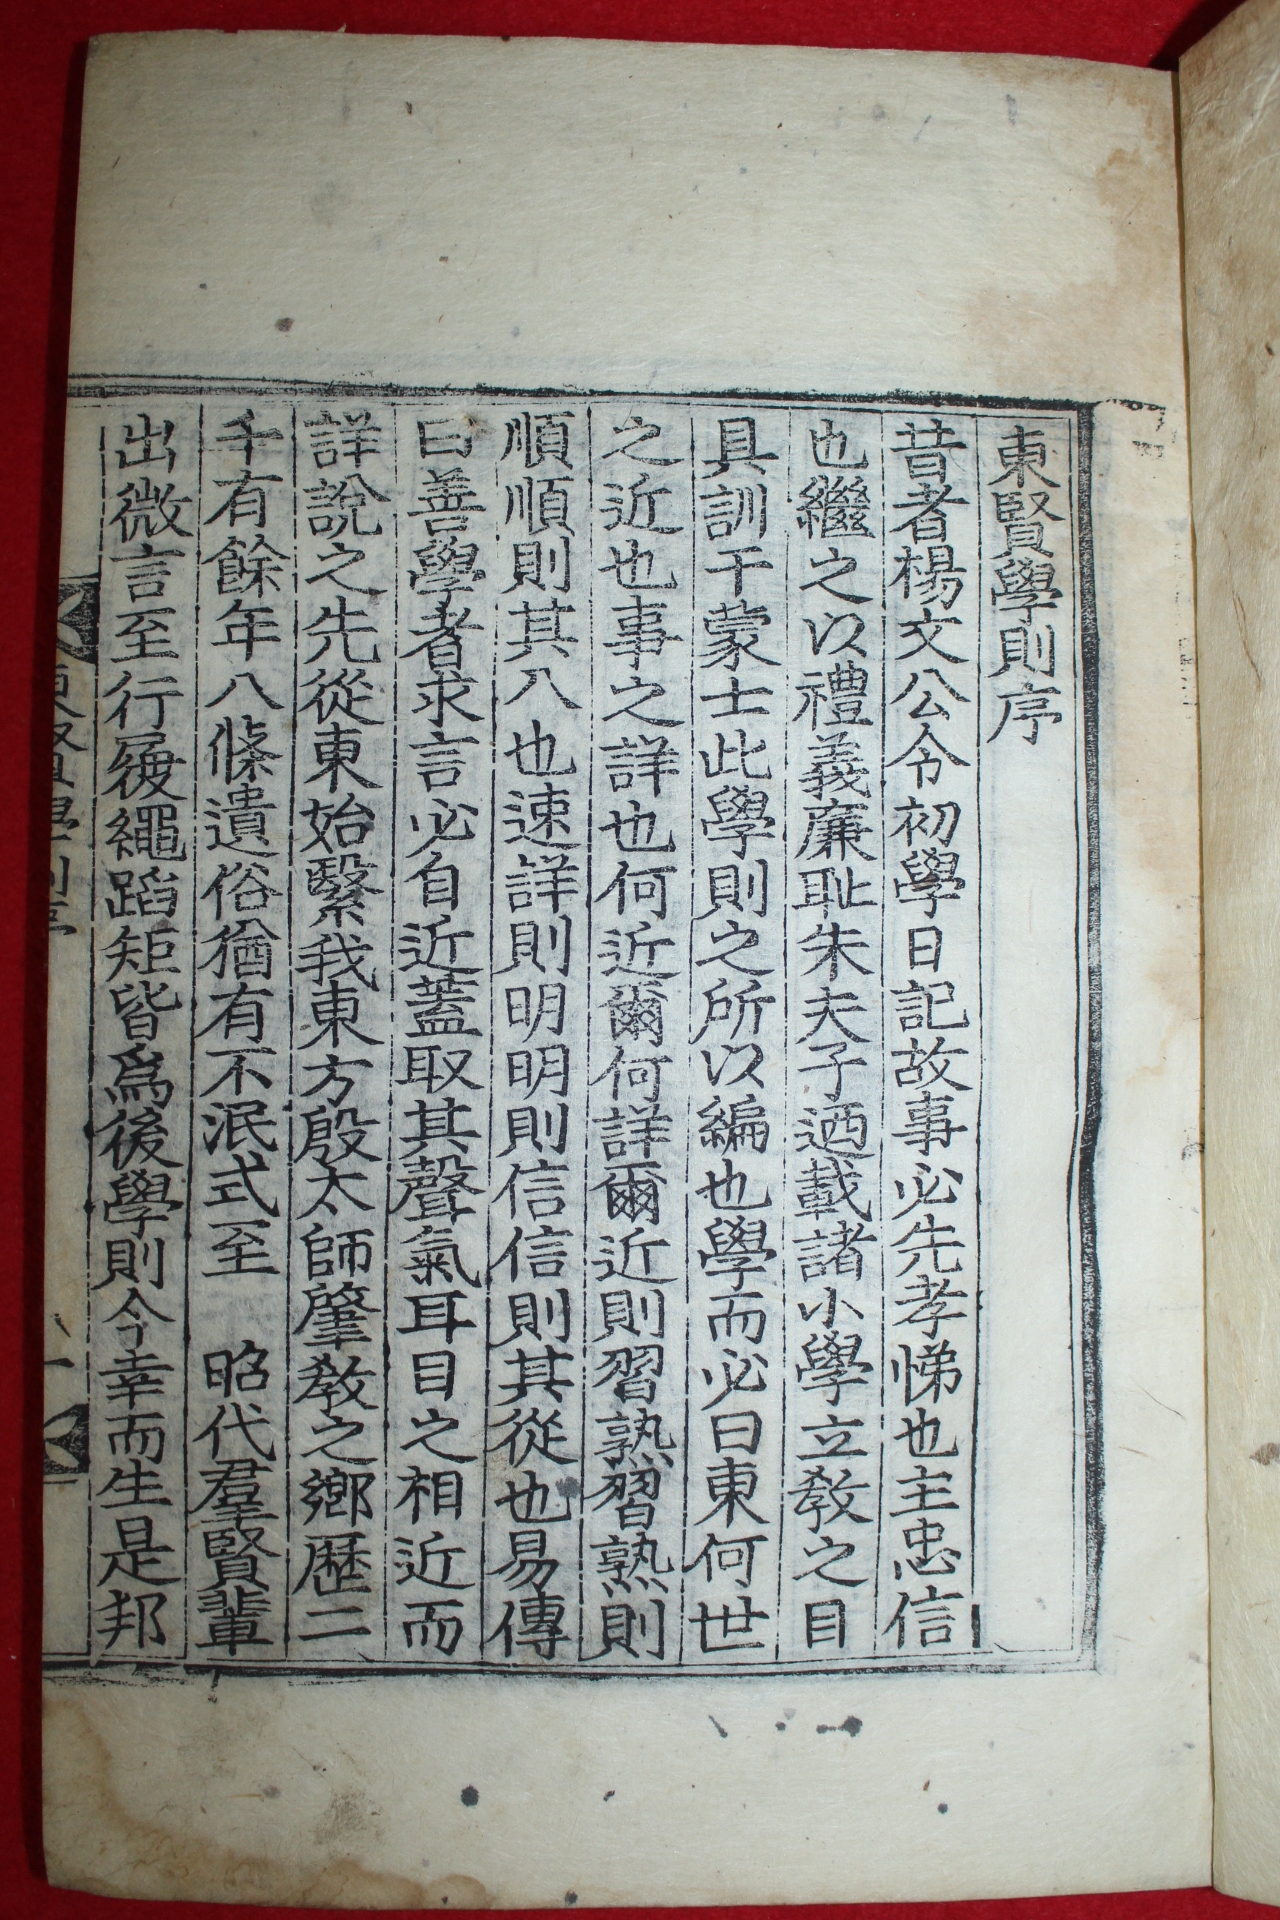 東賢學則序
昔者楊文公令初學日記故事必先孝悌也主忠信
也繼之以禮義廉恥朱夫子迺載諸小學立敎之目
具訓于蒙士此學則之所以編也學而必曰東何世
之近也事之詳也何近爾何詳爾近則習熟習熟則
順順則其入也速詳則明明則信信則其從也易傳
曰善學者求言必自近蓋取其聲氣耳目之相近而
詳說之先從東始繄我東方殷太師肇敎之鄉歷二
千有餘年八條遺俗猶有不泯式至 昭代羣賢輩
出微言至行履繩蹈矩皆爲後學則今幸而生是邦